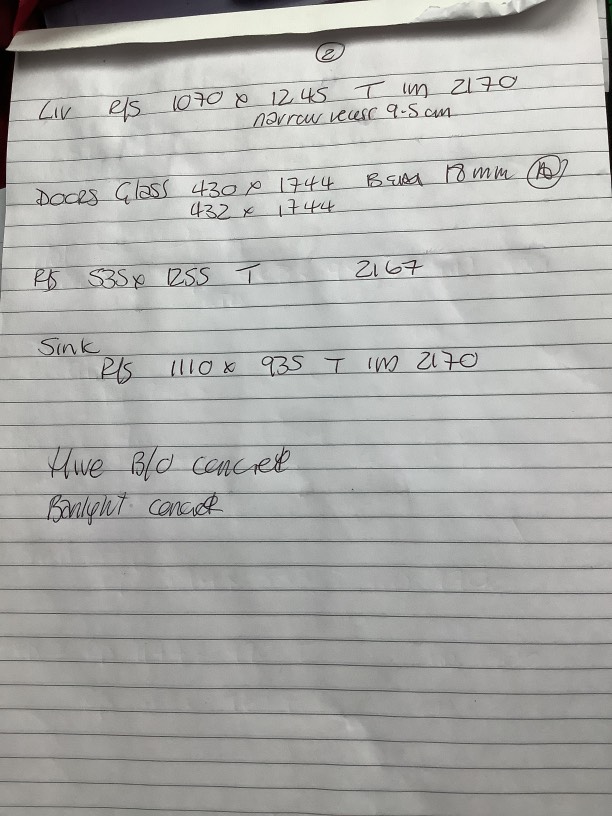 2
Liv R/S 1070 x 1245 T IM 2170
narrow recess 9.5cm
DOORS Glass 430 x 1744 Bead 18mm
432 x 1744
R/S 535 x 1255 T 2167
Sink
R/S 1110 x 935 T IM 2170
Hive B/O concrete
Banlight concrete